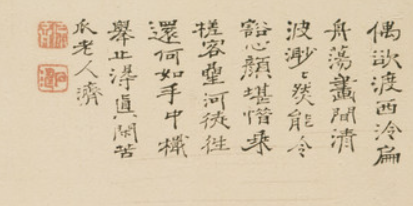 偶欲渡西泠扁
舟蕩畫間清
波渺〻然能令
豁心顏堪惜乘
槎客望河徒往
還何如手中檝
舉止得真閑苦
瓜老人濟